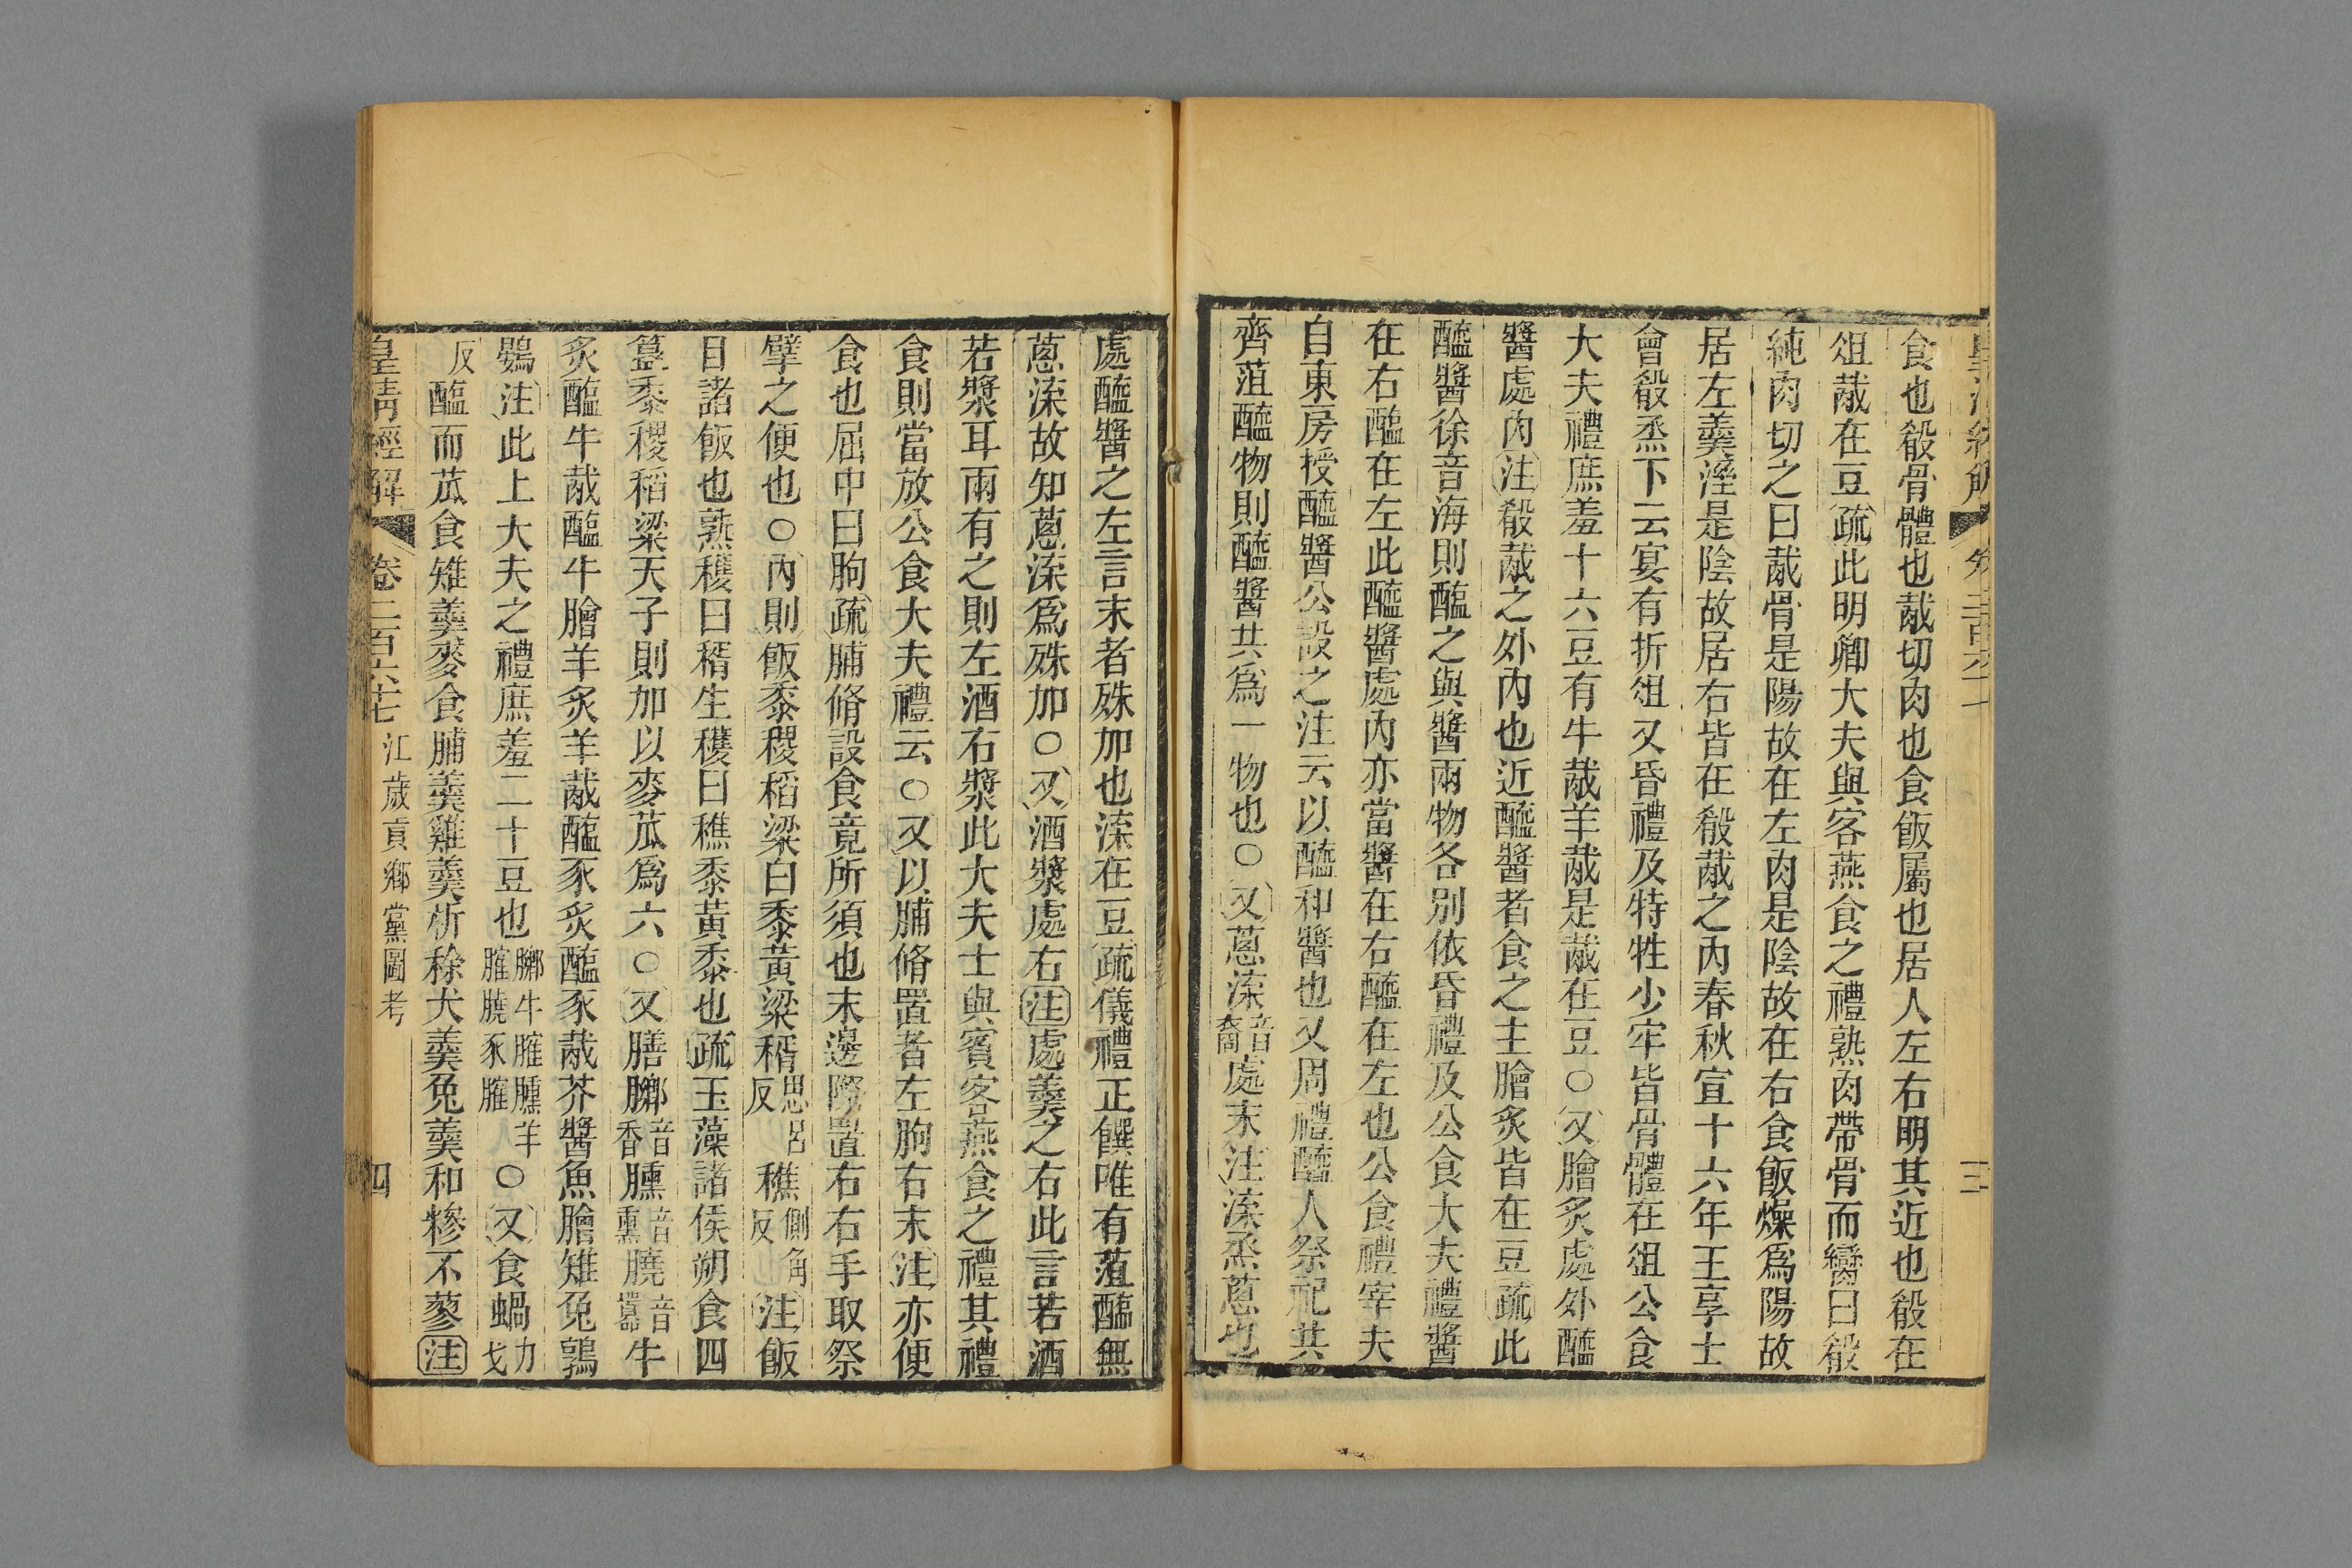 食也殽骨體也胾切肉也食飯屬也居人左右明其近也殽在
俎胾在豆疏此明卿大夫與客燕食之禮熟肉帶骨而臠曰殽
純肉切之曰胾骨是陽故在左肉是陰故在右食飯燥爲陽故
居左羹溼是陰故居右皆在殽胾之內春秋宣十六年王享士
會殽烝下云宴有折俎又昏禮及特牲少牢皆骨體在俎公食
大夫禮庶羞十六豆有牛胾羊胾是胾在豆○又膾炙處外醯
醬處內注殽胾之外內也近醯醬者食之主膾炙皆在豆疏此
醯醬徐音海則醢之與醬兩物各別依昏禮及公食大夫禮醬
在右醢在左此醯醬處內亦當醬在右醯在左也公食禮宰夫
自東房授醯醬公設之注云以醯和醬也又周禮醯人祭祀共
齊菹醯物則醯醬共爲一物也○又蔥渿音裔處末注渿烝蔥也
處醯醬之左言末者殊加也渿在豆疏儀禮正饌唯有菹醢無
蔥渿故知蔥渿爲殊加○又酒漿處右注處羹之右此言若酒
若漿耳兩有之則左酒右漿此大夫士與賓客燕食之禮其禮
食則當放公食大夫禮云○又以脯脩置者左朐右末注亦便
食也屈中曰朐疏脯脩設食竟所須也末邊際置右右手取祭
擘之便也○內則飯黍稷稻粱白黍黃粱稰思呂反穛側角反注飯
目諸飯也熟穫曰稰生穫曰穛黍黃黍也疏玉藻諸侯朔食四
簋黍稷稻粱天子則加以麥苽爲六○又膳膷音香臐音熏膮音囂牛
炙醢牛胾醢牛膾羊炙羊胾醢豕炙醢豕胾芥醬魚膾雉兔鶉
鷃注此上大夫之禮庶羞二十豆也膷牛臛臐羊臛膮豕臛○又食蝸力戈
反醢而苽食雉羹麥食脯羹雞羹析稌犬羹兔羹和糝不蓼注
皇清經解 卷二百六十七 江歲貢鄉黨圖考 四